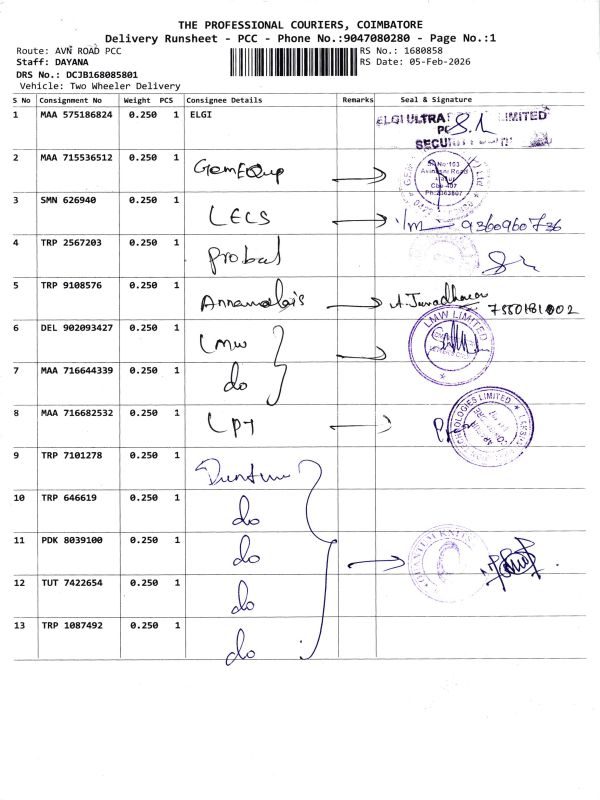 THE PROFESSIONAL COURIERS, COIMBATORE
Delivery Runsheet - PCC - Phone No.:9047080280 - Page No.:1
Route: AVN ROAD PCC
RS No.: 1680858
Staff: DAYANA
RS Date: 05-Feb-2026
DRS No.: DCJB168085801
Vehicle: Two Wheeler Delivery
S No Consignment No Weight PCS Consignee Details Remarks Seal & Signature
1 MAA 575186824 0.250 1 ELGI
ELGI ULTRA LIMITED
SECURITY
2 MAA 715536512 0.250 1
3 SMN 626940 0.250 1 LECS 9360960736
4 TRP 2567203 0.250 1 Probal
5 TRP 9108576 0.250 1 Annamalais 7550181002
6 DEL 902093427 0.250 1 LMW
LMW LIMITED
7 MAA 716644339 0.250 1 do
8 MAA 716682532 0.250 1 LPT
TECHNOLOGIES LIMITED
9 TRP 7101278 0.250 1
10 TRP 646619 0.250 1 do
11 PDK 8039100 0.250 1 do
12 TUT 7422654 0.250 1 do
13 TRP 1087492 0.250 1 do